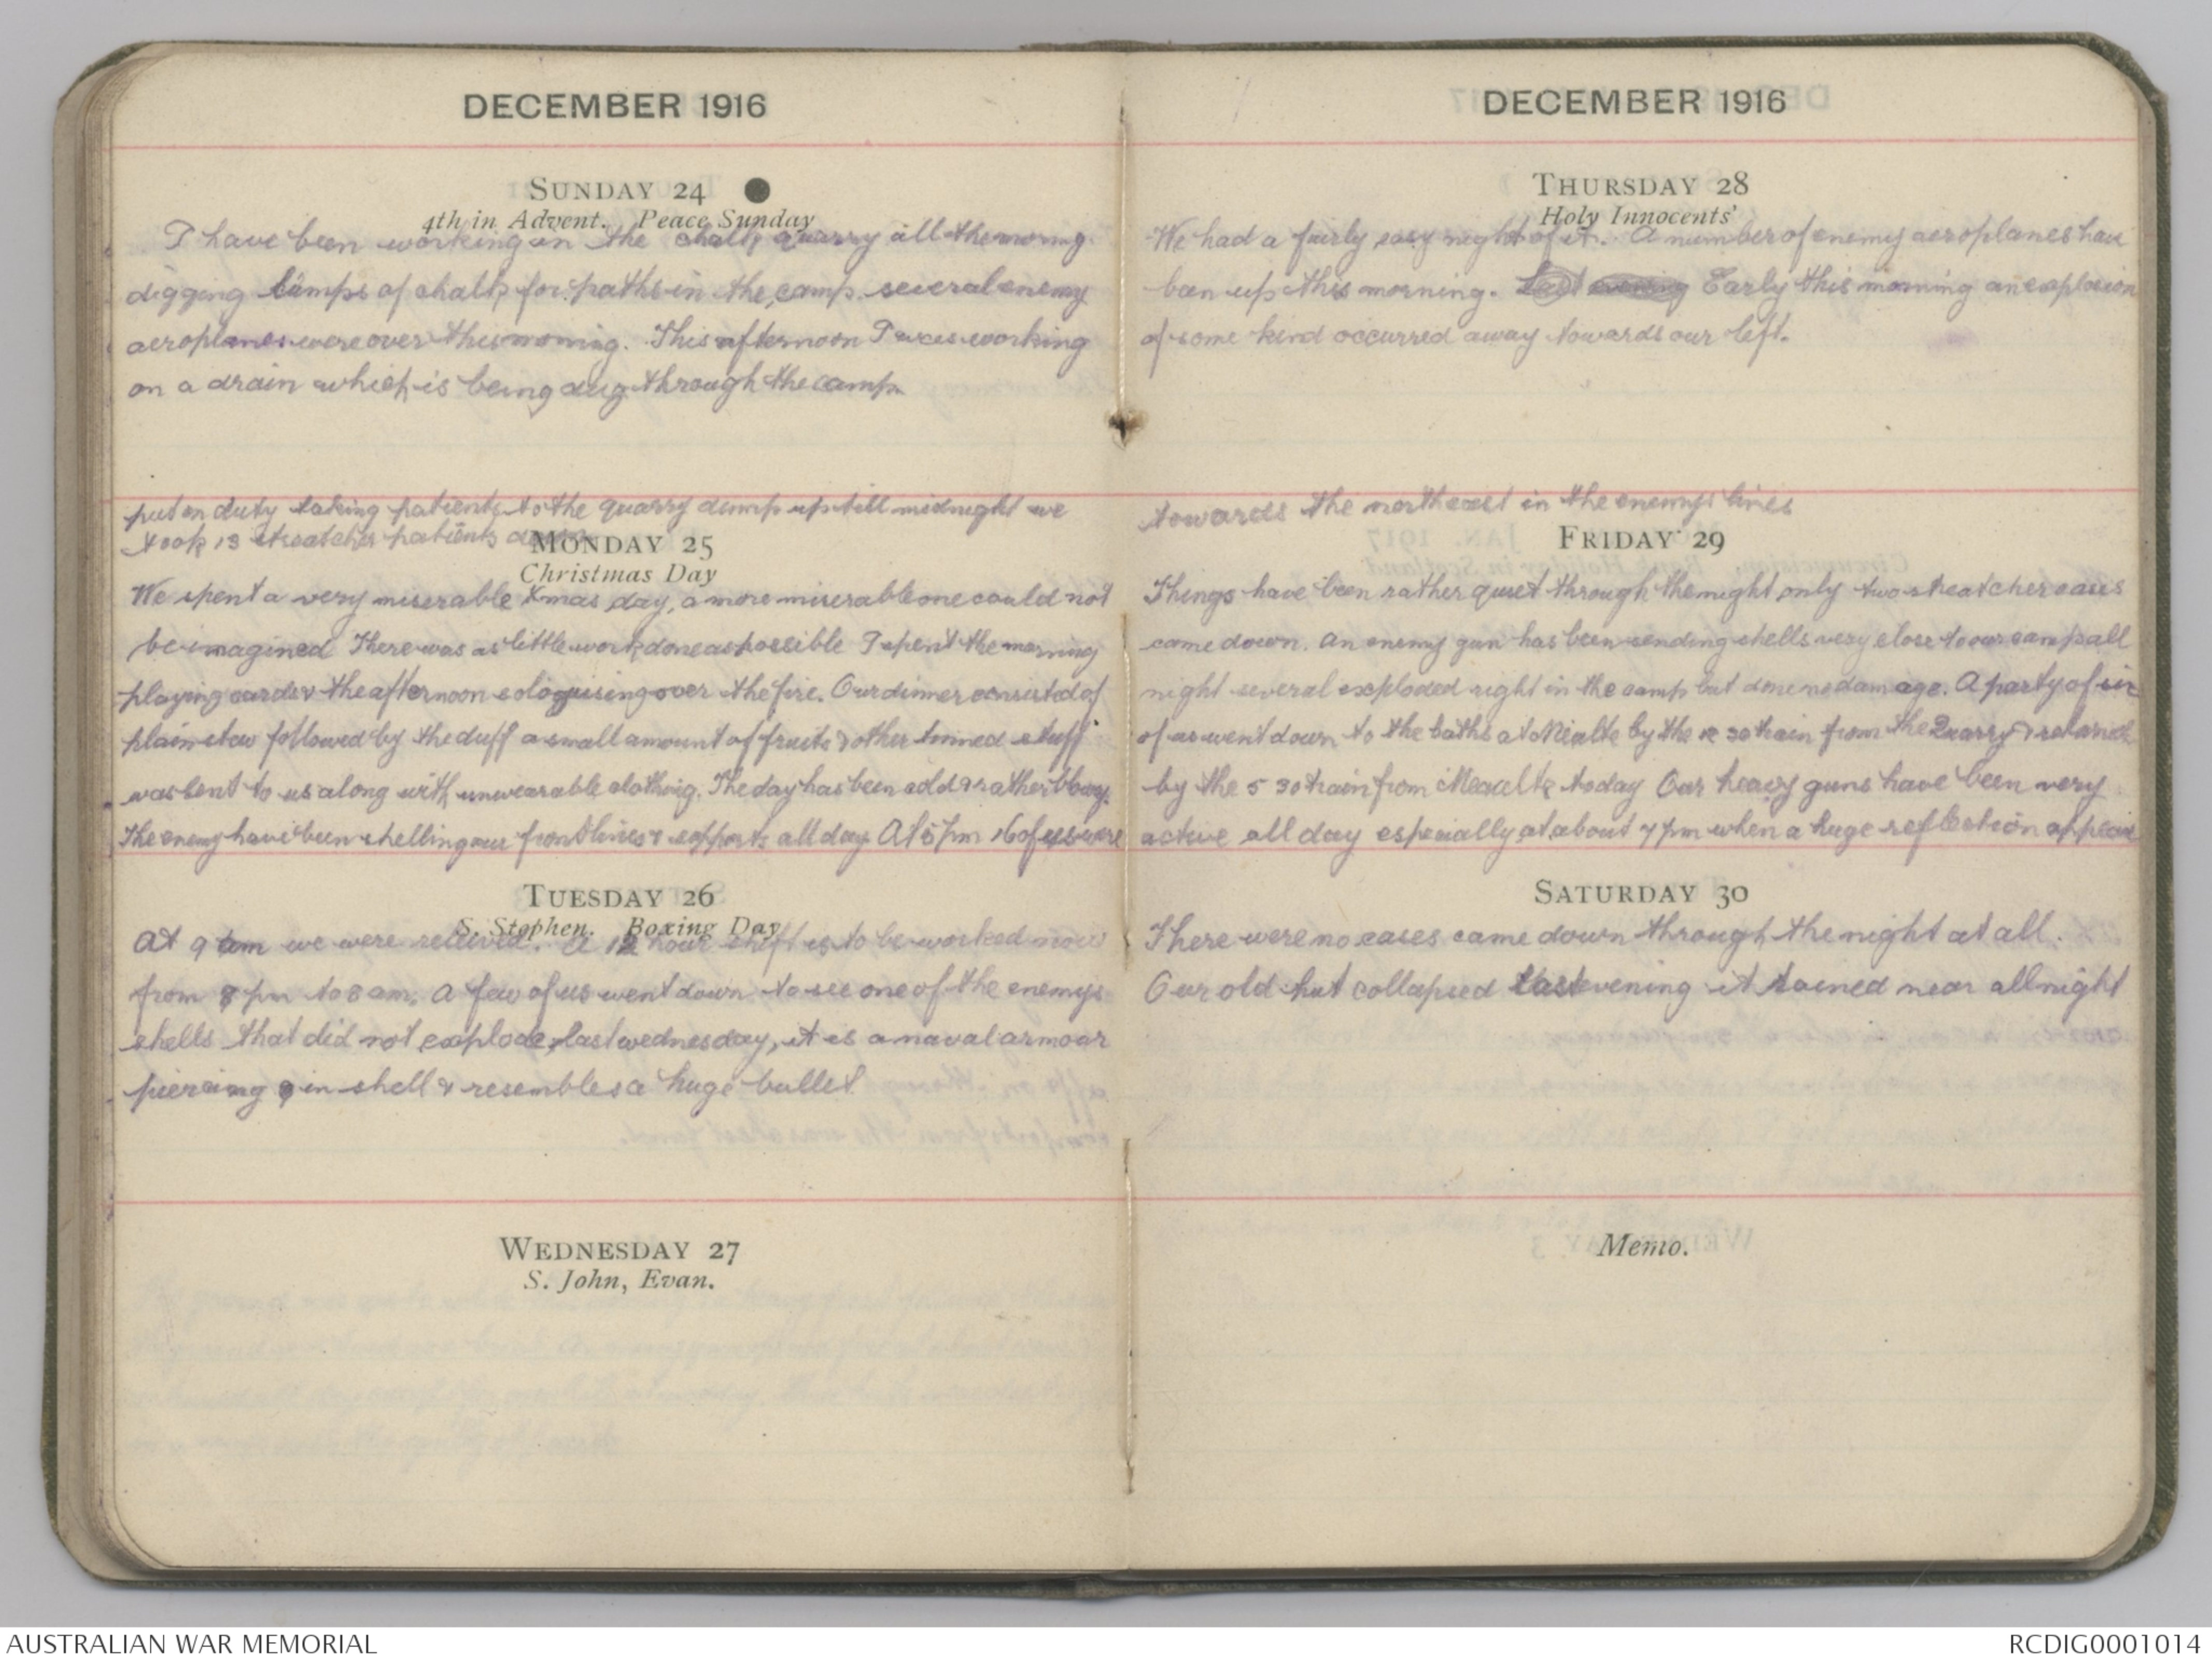 DECEMBER 1916
SUNDAY 24
4th in Advent. Peace Sunday
I have been working in the chalk quarry all the morning
digging lumps of chalk for paths in the camp. several enemy
aeroplanes were over this morning. This afternoon I was working
on a drain which is being dug through the camp.
put on duty taking patients to the quarry dump up till midnight we
took 13 streatcher patients down
MONDAY 25
Christmas Day
We spent a very miserable Xmas day, a more miserable one could not
be imagined There was as little work done as possible I spent the morning
playing cards & the afternoon sologuising over the fire. Our dinner consisted of
plain stew followed by the duff a small amount of fruits & other tinned stuff
was lent to us along with unwearable clothing. The day has been cold & rather blowy.
The enemy have been shelling our front lines & supports all day. At 5 pm 16 of us were
TUESDAY 26
S. Stephen. Boxing Day
At 9 am we were relieved. A 12 hour shift is to be worked now
from 8 pm to 8 am. A few of us went down to see one of the enemys
shells that did not explode last wednesday, it is a naval armoar
piercing 9 in shell & resembles a huge bullet
WEDNESDAY 27
S. John, Evan.
DECEMBER 1916
THURSDAY 28
Holy Innocents'
We had a fairly easy night of it. A number of enemy aeroplanes have
been up this morning. Last evening Early this morning an explosion
of some kind occurred away towards our left.
towards the northeast in the enemys lines
FRIDAY 29
Things have been rather quiet through the night only two streatcher cases
came down. An enemy gun has been sending shells very close to our camp all
night several exploded right in the camp but done no damage. A party of six
of us went down to the baths at Mealte by the 30 train from the Quarry &
by the 5 30 train from Mealte today Our heavy guns have been very
active all day especially at about 7 pm when a huge reflection appeared
SATURDAY 30
There were no cases came down through the night at all.
Our old hut collapsed last evening it rained near all night
Memo.
AUSTRALIAN WAR MEMORIAL
RCDIG0001014